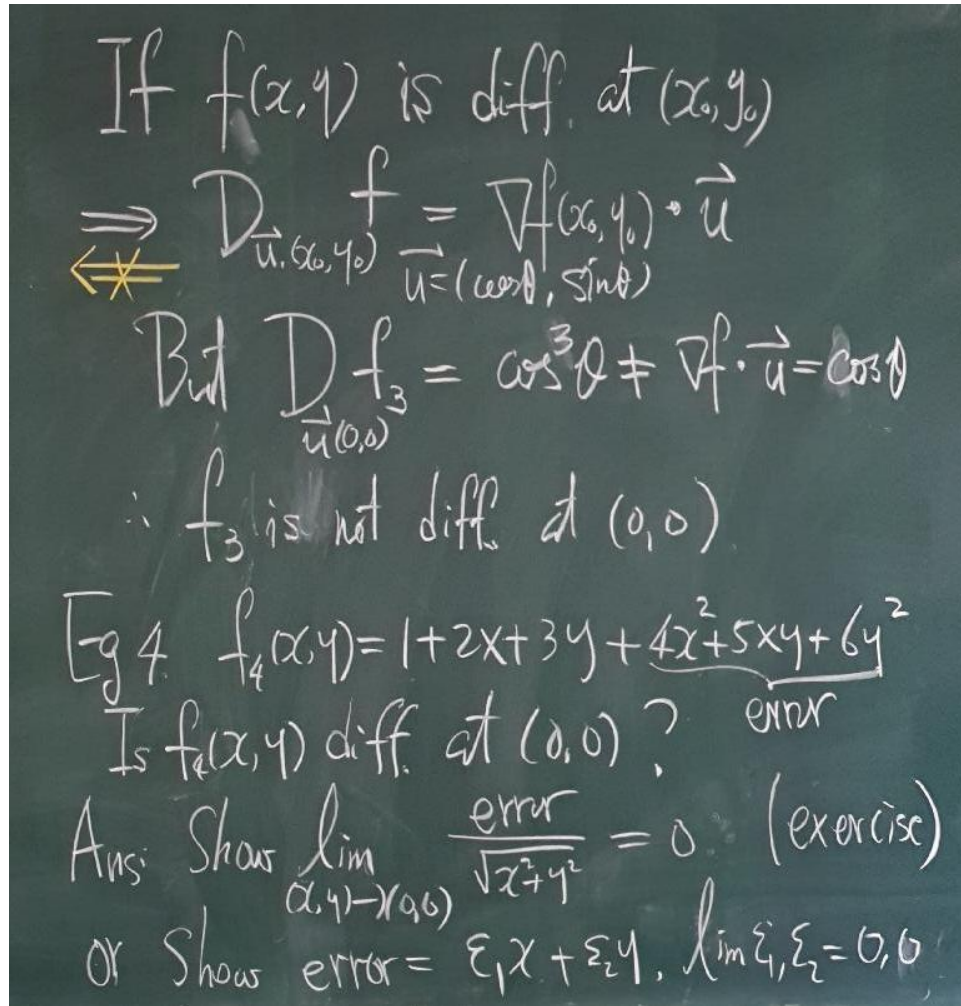 If f(x,y) is diff. at (x₀,y₀)
⟹ D_{\vec{u},(x₀,y₀)} f = ∇f(x₀,y₀)·\vec{u}
\vec{u}=(cosθ, sinθ)
But D_{\vec{u}(0,0)} f₃ = cos³θ ≠ ∇f·\vec{u} = cosθ
∴ f₃ is not diff. at (0,0)
Eg 4. f₄(x,y)=1+2x+3y+4x²+5xy+6y²
error
Is f₄(x,y) diff. at (0,0)?
Ans: Show lim_{(x,y)→(0,0)} error/√(x²+y²) = 0. (exercise)
or Show error = ε₁x + ε₂y, lim ε₁,ε₂ = 0,0